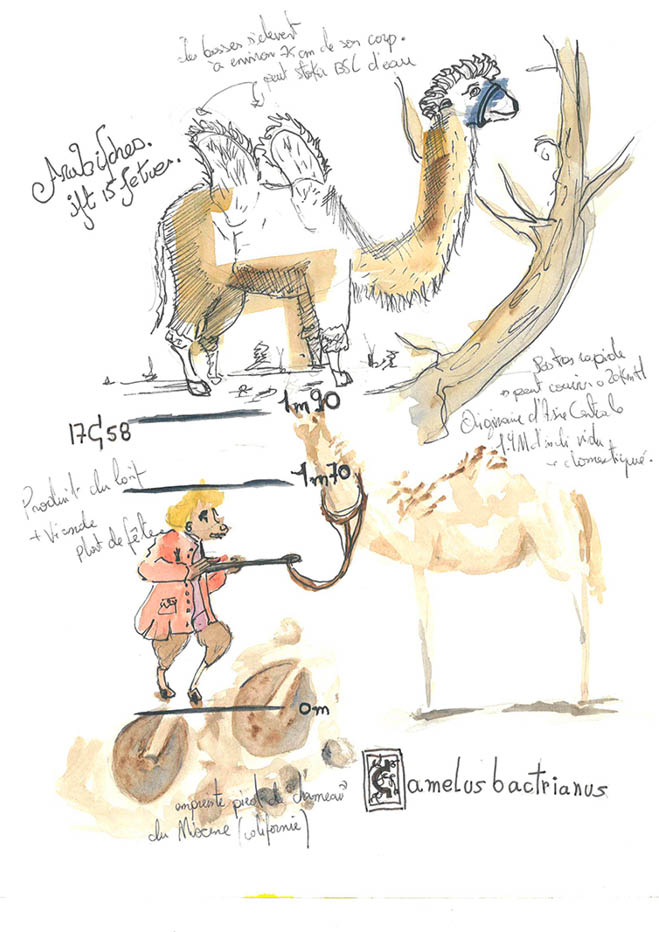 Les bosses s'élèvent
à environ 75 cm de son corp.
peut stocker 85L d'eau
Pas très rapide
peut courir 20km/H
Originaire d'Asie Centrale
1.4M d'individu
domestiqué.
1m90
1758
1m70
Produit du lait
+ Viande
Plat de fête
0m
empreinte pied de chameau
du Miocène (californie)
Camelus bactrianus